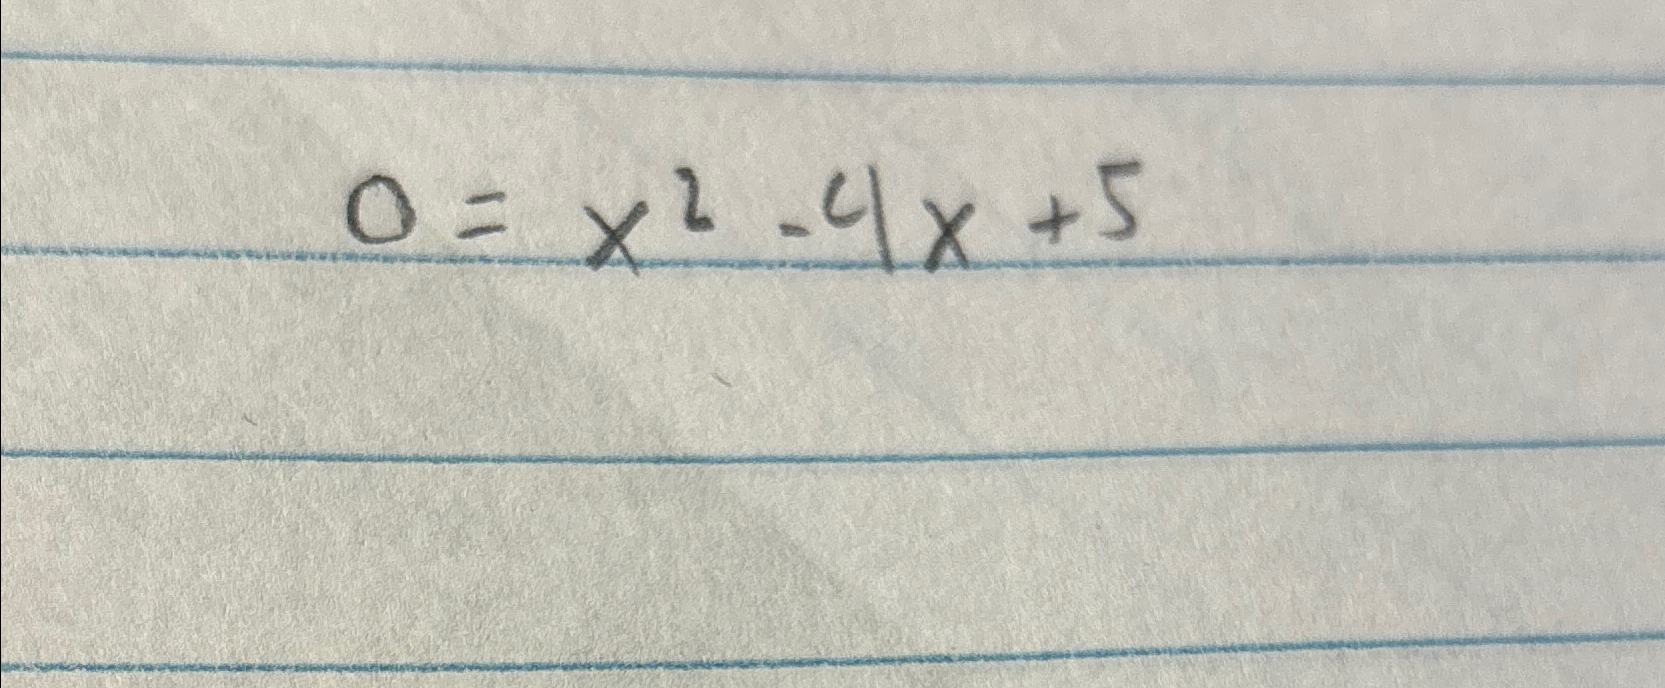 0 = x² - 4x + 5